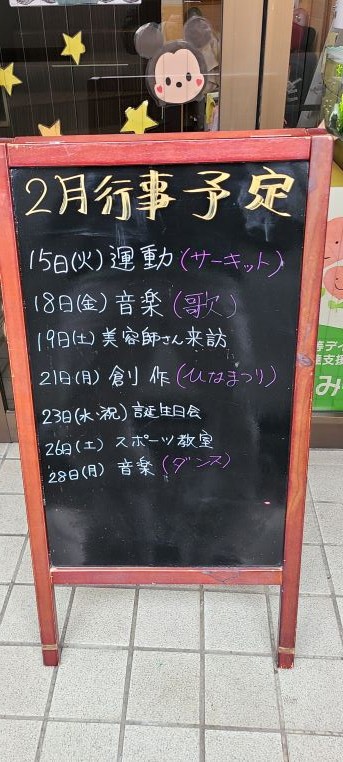 2月行事予定
15日(火) 運動(サーキット)
18日(金) 音楽(歌)
19日(土) 美容師さん来訪
21日(月) 創作(ひなまつり)
23日(水・祝) 誕生日会
26日(土) スポーツ教室
28日(月) 音楽(ダンス)